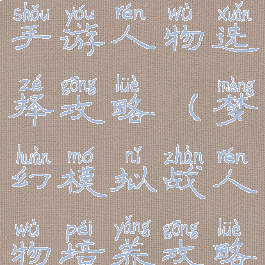 shǒu yóu rén wù xuǎn
手游人物选
zé gōng lüè ( mèng
择攻略（梦
huàn mó nǐ zhàn rén
幻模拟战人
wù péi yǎng gōng lüè
物培养攻略